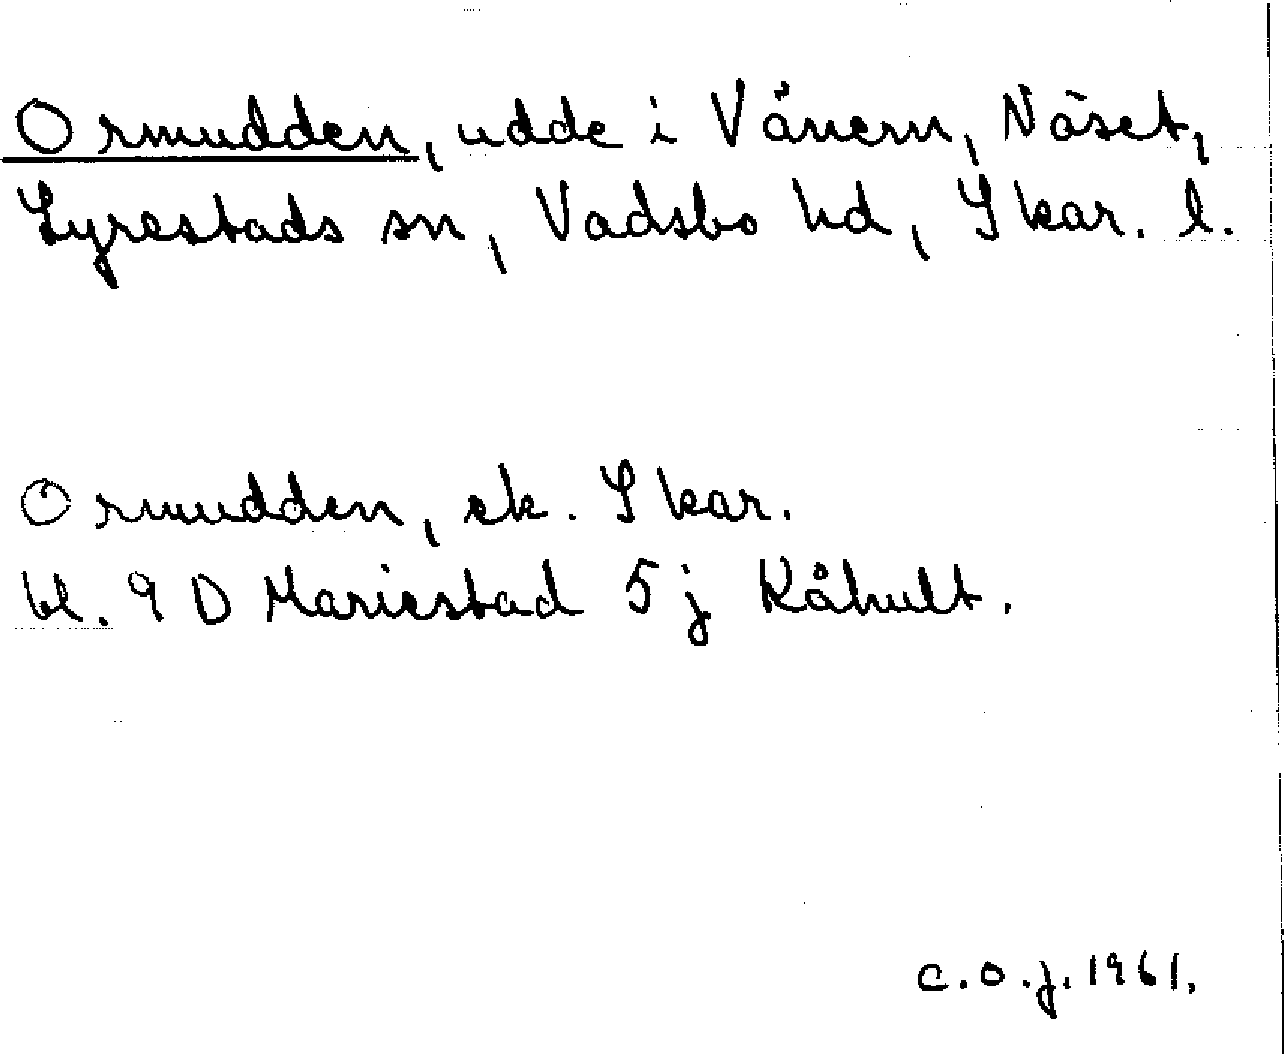 Ormudden, udde i Vänern, Näset,
Lyrestads sn, Vadsbo hd, Skar. l.
Ormudden, ek. Skar.
bl. 9 D Mariestad 5 j Råhult.
C.O.J. 1961.